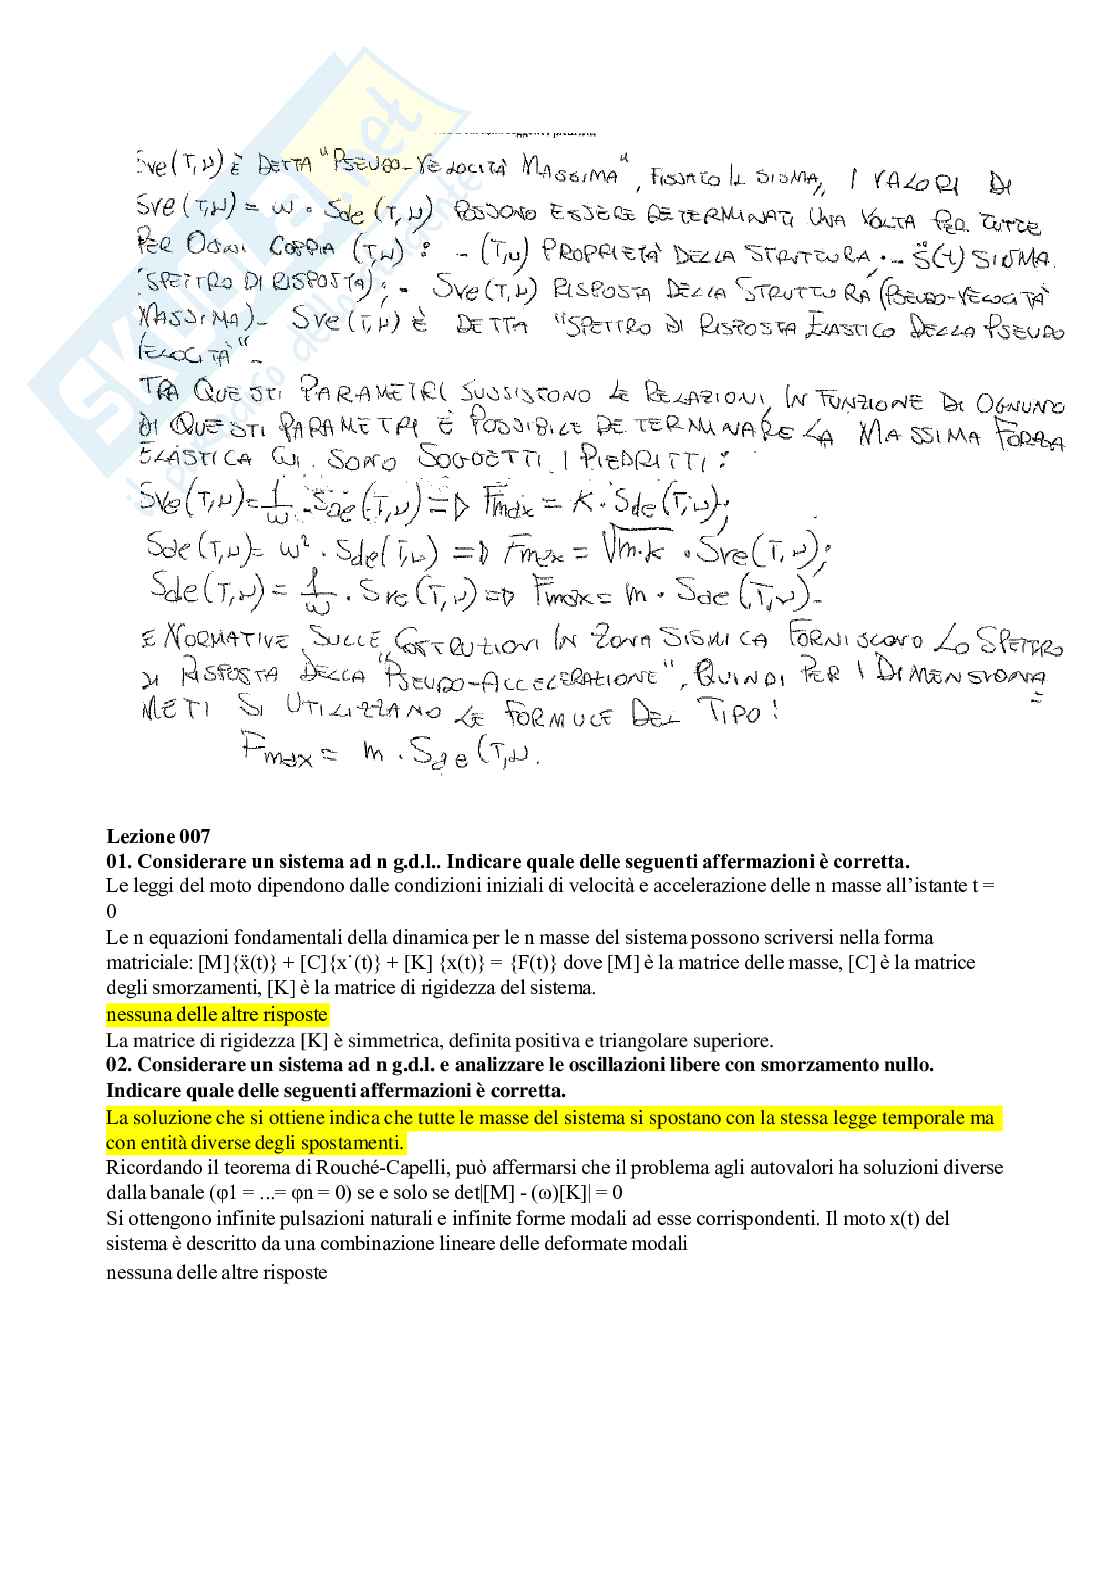 Sve(T,ν) È DETTA "PSEUDO-VELOCITÀ MASSIMA", FISSATO IL SISMA, I VALORI DI
Sve(T,ν) = ω · Sde(T,ν) POSSONO ESSERE DETERMINATI UNA VOLTA PER TUTTE
PER OGNI COPPIA (T,ν) : - (T,ν) PROPRIETÀ DELLA STRUTTURA; - S̈(t) SISMA
(SPETTRO DI RISPOSTA); - Sve(T,ν) RISPOSTA DELLA STRUTTURA (PSEUDO-VELOCITÀ
MASSIMA)- Sve(T,ν) È DETTA "SPETTRO DI RISPOSTA ELASTICO DELLA PSEUDO
VELOCITÀ"-
TRA QUESTI PARAMETRI SUSSISTONO LE RELAZIONI, IN FUNZIONE DI OGNUNO
DI QUESTI PARAMETRI È POSSIBILE DETERMINARE LA MASSIMA FORZA
ELASTICA CUI SONO SOGGETTI I PIEDRITTI:
Sve(T,ν)=1/ω · Sae(T,ν) => Fmax = K · Sde(T,ν);
Sae(T,ν)= ω² · Sde(T,ν) => Fmax = √m·k · Sve(T,ν);
Sde(T,ν) = 1/ω · Sve(T,ν) => Fmax = m · Sae(T,ν)-
E NORMATIVE SULLE COSTRUZIONI IN ZONA SISMICA FORNISCONO LO SPETTRO
DI RISPOSTA DELLA "PSEUDO-ACCELERAZIONE", QUINDI PER I DIMENSIONA
METI SI UTILIZZANO LE FORMULE DEL TIPO: =
Fmax = m · Sae(T,ν.
Lezione 007
01. Considerare un sistema ad n g.d.l.. Indicare quale delle seguenti affermazioni è corretta.
Le leggi del moto dipendono dalle condizioni iniziali di velocità e accelerazione delle n masse all'istante t =
0
Le n equazioni fondamentali della dinamica per le n masse del sistema possono scriversi nella forma
matriciale: [M]{ẍ(t)} + [C]{x˙(t)} + [K] {x(t)} = {F(t)} dove [M] è la matrice delle masse, [C] è la matrice
degli smorzamenti, [K] è la matrice di rigidezza del sistema.
nessuna delle altre risposte
La matrice di rigidezza [K] è simmetrica, definita positiva e triangolare superiore.
02. Considerare un sistema ad n g.d.l. e analizzare le oscillazioni libere con smorzamento nullo.
Indicare quale delle seguenti affermazioni è corretta.
La soluzione che si ottiene indica che tutte le masse del sistema si spostano con la stessa legge temporale ma
con entità diverse degli spostamenti.
Ricordando il teorema di Rouché-Capelli, può affermarsi che il problema agli autovalori ha soluzioni diverse
dalla banale (φ1 = ...= φn = 0) se e solo se det|[M] - (ω)[K]| = 0
Si ottengono infinite pulsazioni naturali e infinite forme modali ad esse corrispondenti. Il moto x(t) del
sistema è descritto da una combinazione lineare delle deformate modali
nessuna delle altre risposte